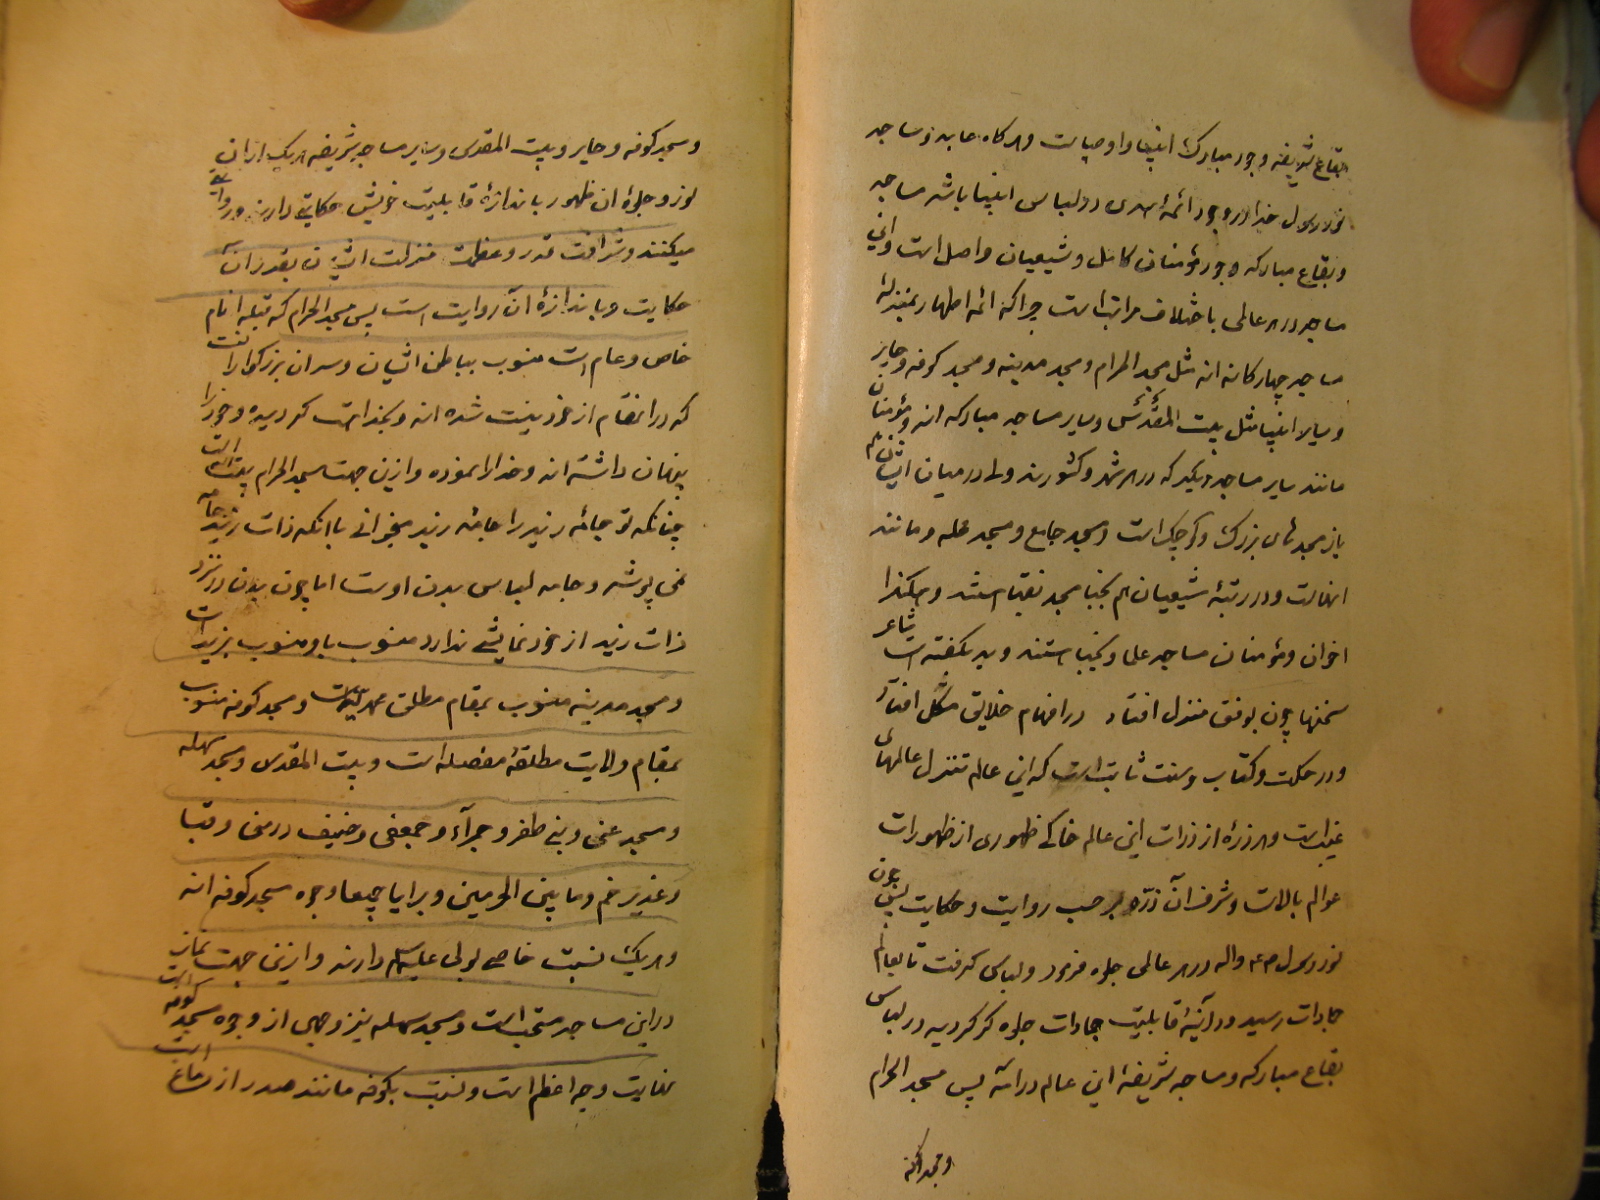 بقاع شریفه وجود مبارک انبیا و اوصیاست و هرکاه عابد و ساجد
نور رسول خدا در وجود ائمهٔ هدی در لباس انبیا باشد مساجد
و بقاع مبارکه وجود مؤمنان کامل و شیعیان واصل است و این
مساجد در هر عالمی باختلاف مراتب است چرا که ائمه اطهار بمنزلهٔ
مساجد چهارکانه اند مثل مسجد الحرام و مسجد مدینه و مسجد کوفه و حایر
و سایر انبیا مثل بیت المقدس و سایر مساجد مبارکه اند و مؤمنان
مانند سایر مساجد دیکر که در هر شهر و کشورند ولی در میان ایشان هم
باز مسجد های بزرک و کوچک است و مسجد جامع و مسجد محله و مانند
اینهاست و در رتبهٔ شیعیان هم نجبا مسجد نقبا استند و همکذا
اخوان و مؤمنان مساجد علما و نجبا استند و بد نکفته است شاعر
سخنها چون بوفق منزل افتاد در افهام خلایق مشکل افتاد
و در حکمت و کتاب و سنت ثابت است که این عالم تنزل عالمهای
غیب است و هر ذرهٔ از ذرات این عالم خاکی ظهوری از ظهورات
عوالم بالاست و شرف آن ذره بر حسب روایت و حکایت پس چون
نور رسول ص ع و اله در هر عالمی جلوه فرمود و لباس کرفت تا بعالم
جمادات رسید و در آینهٔ قابلیت جمادات جلوه کر کردید و در لباس
بقاع مبارکه و مساجد شریفهٔ این عالم در آمد پس مسجد الحرام
و مسجد
و مسجد کوفه و حایر و بیت المقدس و سایر مساجد شریفه هریک از آن
نور و جلوهٔ آن ظهور باندازهٔ قابلیت خویش حکایتی دارند و روایتی
میکنند و شرافت قدر و عظمت منزلت ایشان بقدر آن
حکایت و باندازهٔ آن روایت است پس مسجد الحرام که قبلهٔ انام
خاص و عام است منسوب بباطن ایشان و سر آن بزرکواران است
که در آنمقام از خود نیست شده اند و بخدا هست کردیده و خود را
پنهان داشته اند و خدا را نموده و ازین جهت مسجد الحرام بیت الله است
چنانکه تو جامهٔ زید را جامهٔ زید میخوانی با انکه ذات زید جامه
نمی پوشد و جامه لباس بدن اوست اما چون بدن در نزد
ذات زید از خود نمایشی ندارد منسوب باو منسوب بزید است
و مسجد مدینه منسوب بمقام مطلق محمدیت است و مسجد کوفه منسوب
بمقام ولایت مطلقهٔ مفصله است و بیت المقدس و مسجد سهله
و مسجد غنی و بنی ظفر و حمراء و جعفی و خیف در منی و قبا
و غدیر خم و ما بین الحرمین و براثا جمیعا وجوه مسجد کوفه اند
و هریک نسبت خاصی بولی علیه السلام دارند و ازین جهت نماز
در این مساجد مستحب است و مسجد سهله نیز وجهی از وجوه مسجد کوفه است
نهایت وجه اعظم است و نسبت بکوفه مانند صدر از دماغ است